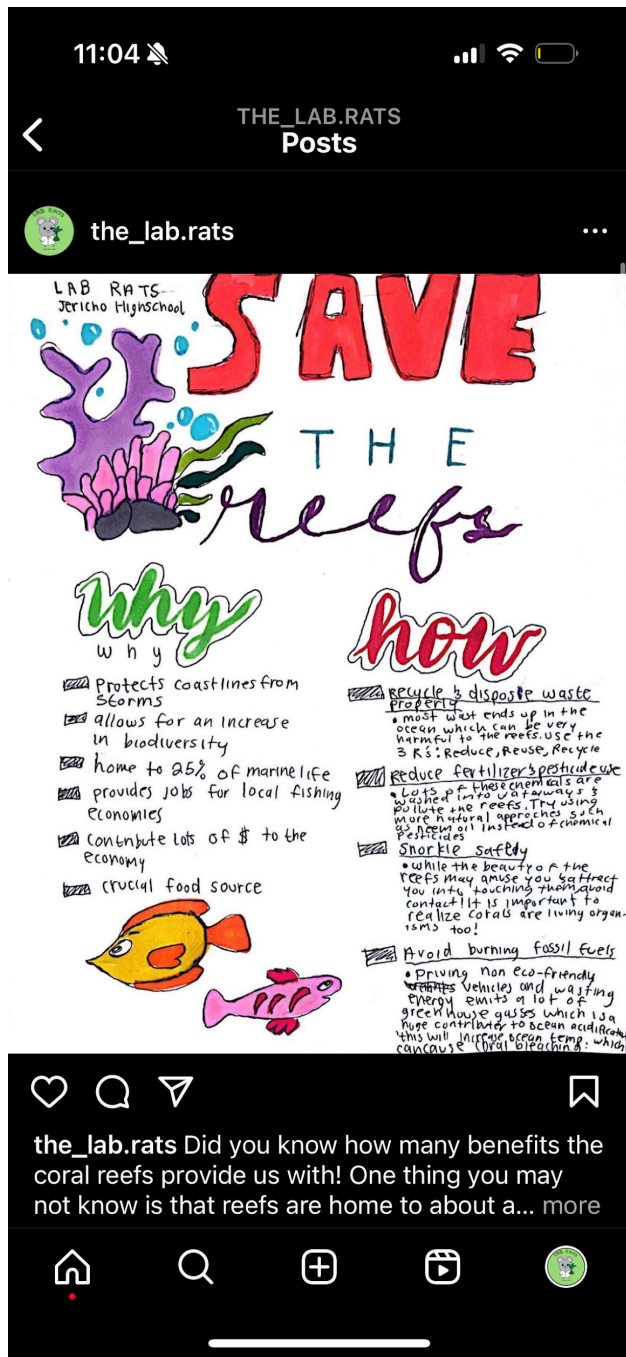 11:04
THE_LAB.RATS
Posts
the_lab.rats
LAB RATS
Jericho Highschool
SAVE
THE
reefs
why
why
Protects coastlines from
storms
allows for an increase
in biodiversity
home to 25% of marine life
provides jobs for local fishing
economies
contribute lots of $ to the
economy
crucial food source
how
Recycle & dispose waste
properly
• most wast ends up in the
ocean which can be very
harmful to the reefs. use the
3 R's: Reduce, Reuse, Recycle
Reduce fertilizer & pesticide use
• Lots of these chemicals are
washed into waterways &
pollute the reefs. Try using
more natural approches such
as neem oil instead of chemical
pesticides
Snorkle safely
• while the beauty of the
reefs may amuse you & attract
you into touching them, avoid
contact! It is important to
realize corals are living organ-
isms too!
Avoid burning fossil fuels
• Driving non eco-friendly
vehicles and wasting
energy emits a lot of
greenhouse gasses which is a
huge contributer to ocean acidificat
this will increase ocean temp. which
can cause coral bleaching.
the_lab.rats Did you know how many benefits the
coral reefs provide us with! One thing you may
not know is that reefs are home to about a... more